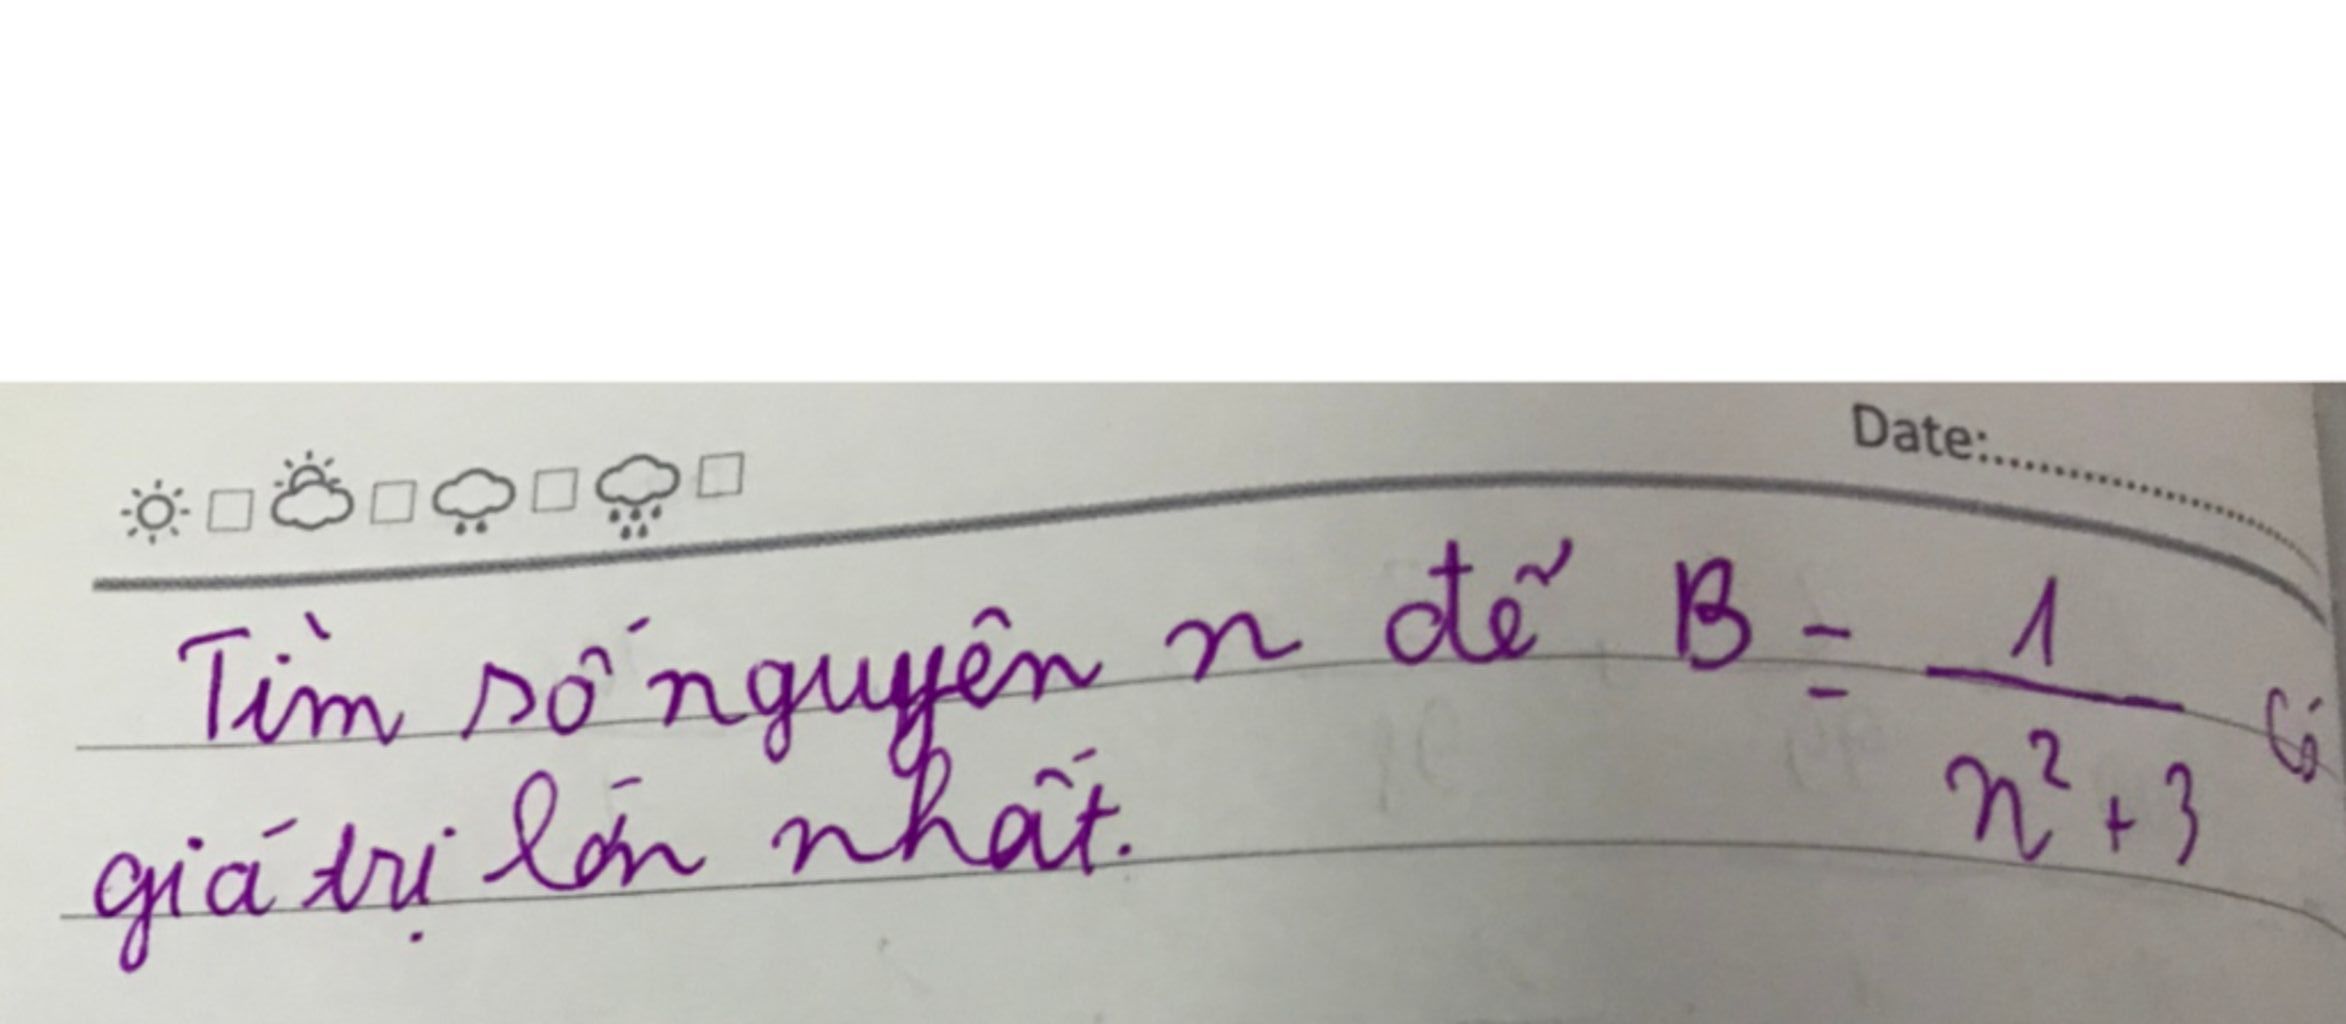 Date:....................
Tìm số nguyên n để B = 1/(n² + 3) Có
giá trị lớn nhất.